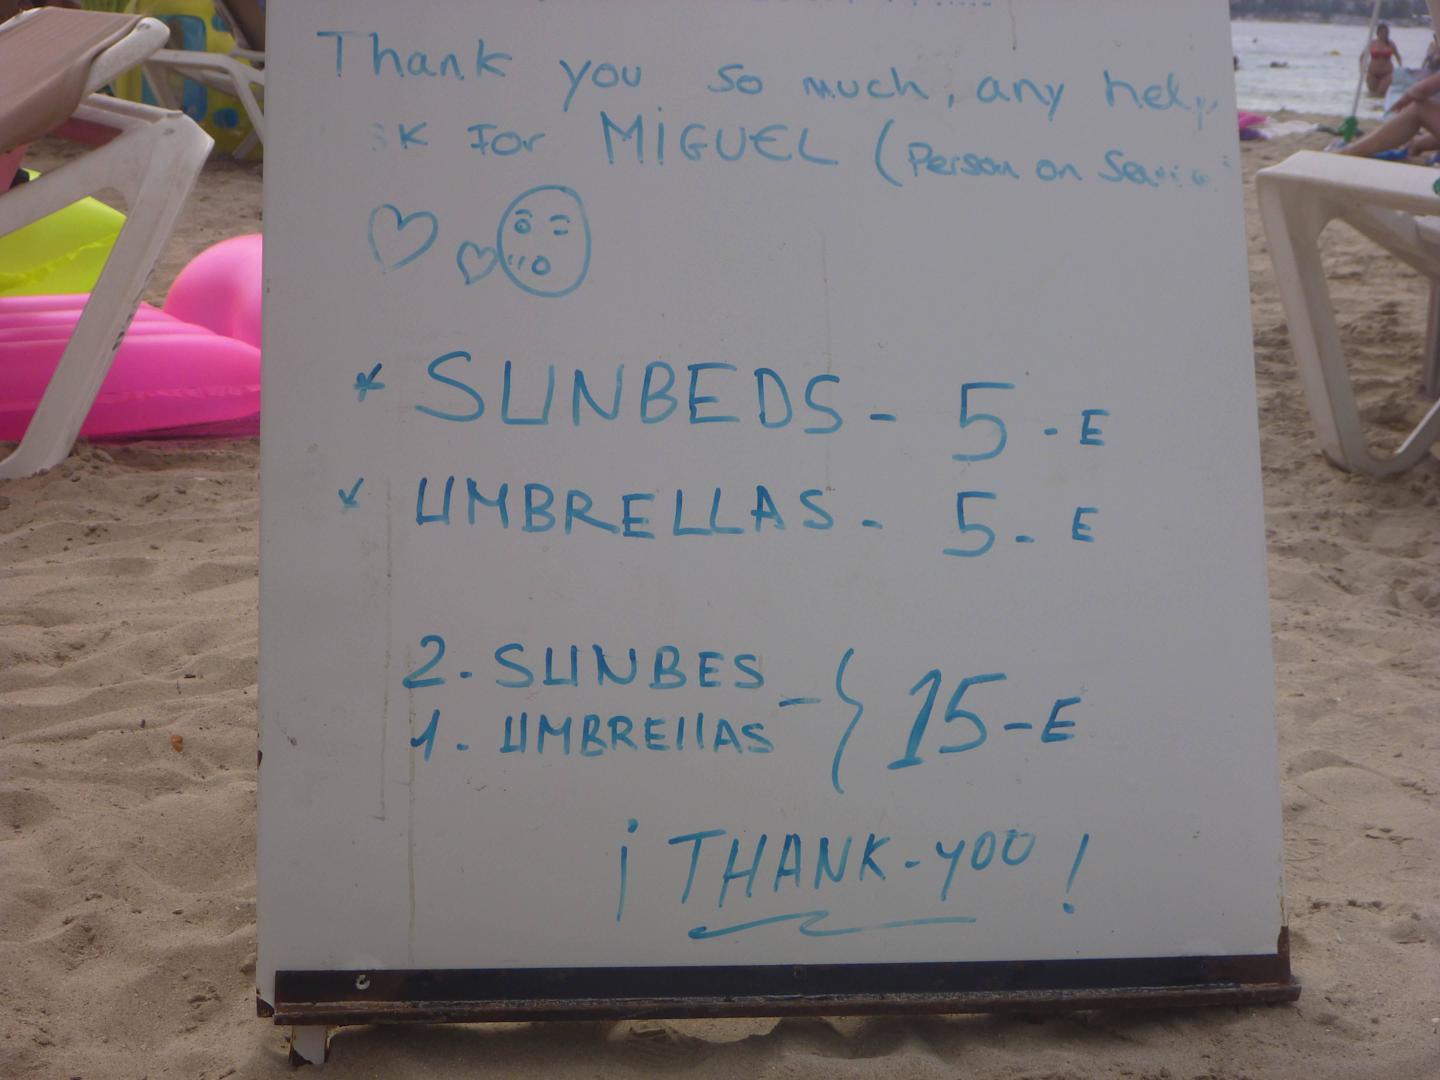 Thank you so much, any help
ask for MIGUEL (Person on Service
* SUNBEDS - 5 - E
* UMBRELLAS - 5 - E
2. SUNBES
1. UMBREllAS - } 15 - E
¡THANK-YOU!